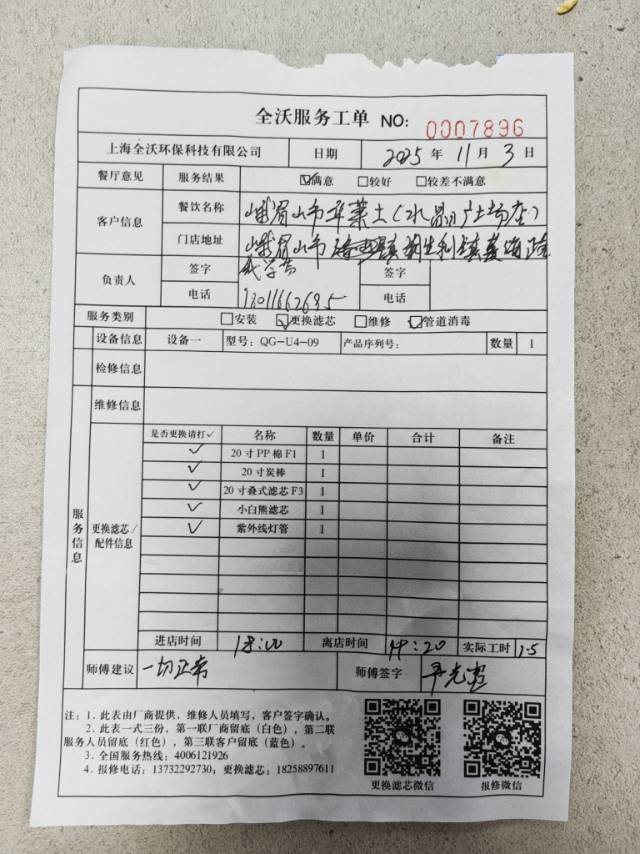 全沃服务工单 NO: 0007896
上海全沃环保科技有限公司 日期 2025 年 11 月 3 日
餐厅意见 服务结果 ☑满意 □较好 □较差不满意
客户信息 餐饮名称 峨眉山市华莱士(水晶广场店)
门店地址 峨眉山市
负责人 签字 签字
电话 电话
服务类别 □安装 ☑更换滤芯 □维修 ☑管道消毒
设备信息 设备一 型号: QG-U4-09 产品序列号: 数量 1
检修信息
维修信息
服务信息
更换滤芯/配件信息
是否更换请打✓ 名称 数量 单价 合计 备注
✓ 20寸PP棉F1 1
✓ 20寸炭棒 1
✓ 20寸叠式滤芯F3 1
✓ 小白熊滤芯 1
✓ 紫外线灯管 1
进店时间 18:00 离店时间 实际工时 1.5
师傅建议 一切正常 师傅签字
注: 1. 此表由厂商提供，维修人员填写，客户签字确认。
2. 此表一式三份，第一联厂商留底（白色），第二联
服务人员留底（红色），第三联客户留底（蓝色）。
3. 全国服务热线: 4006121926
4. 报修电话: 13732292730; 更换滤芯: 18258897611
更换滤芯微信 报修微信